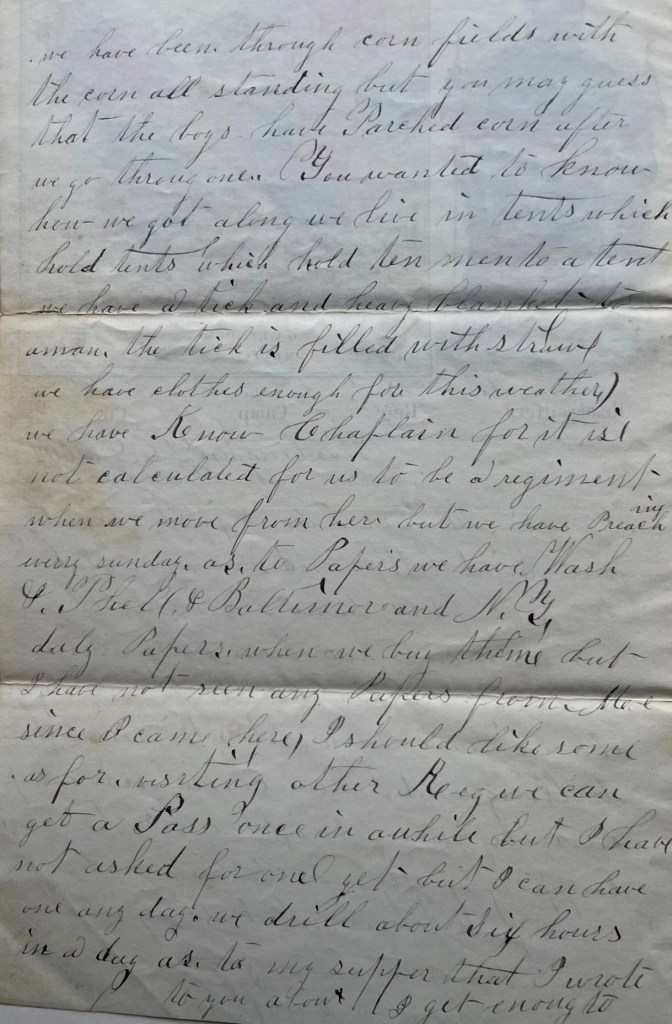 we have been through corn fields with
the corn all standing but you may guess
that the boys have Parched corn after
we go throug one. (You wanted to know
how we got along we live in tents which
hold tents which hold ten men to a tent
we have a tick and heavy blanket to
aman. the tick is filled with straw
we have clothes enough for this weather)
we have Know Chaplain for it is
not calculated for us to be a regiment
when we move from her but we have Preach
ing
evrry sunday. as. to Papers we have Wash
&. Phell, & Baltimor and N. Y.
daly Papers. when we buy theme but
I have not seen any Papers from
since I came here, I should like some
as for. visiting other Reg we can
get a Pass once in awhile but I have
not asked for one yet but I can have
one any day. we drill about six hours
in a day as. to my supper that I wrote
to you about I get enoug to